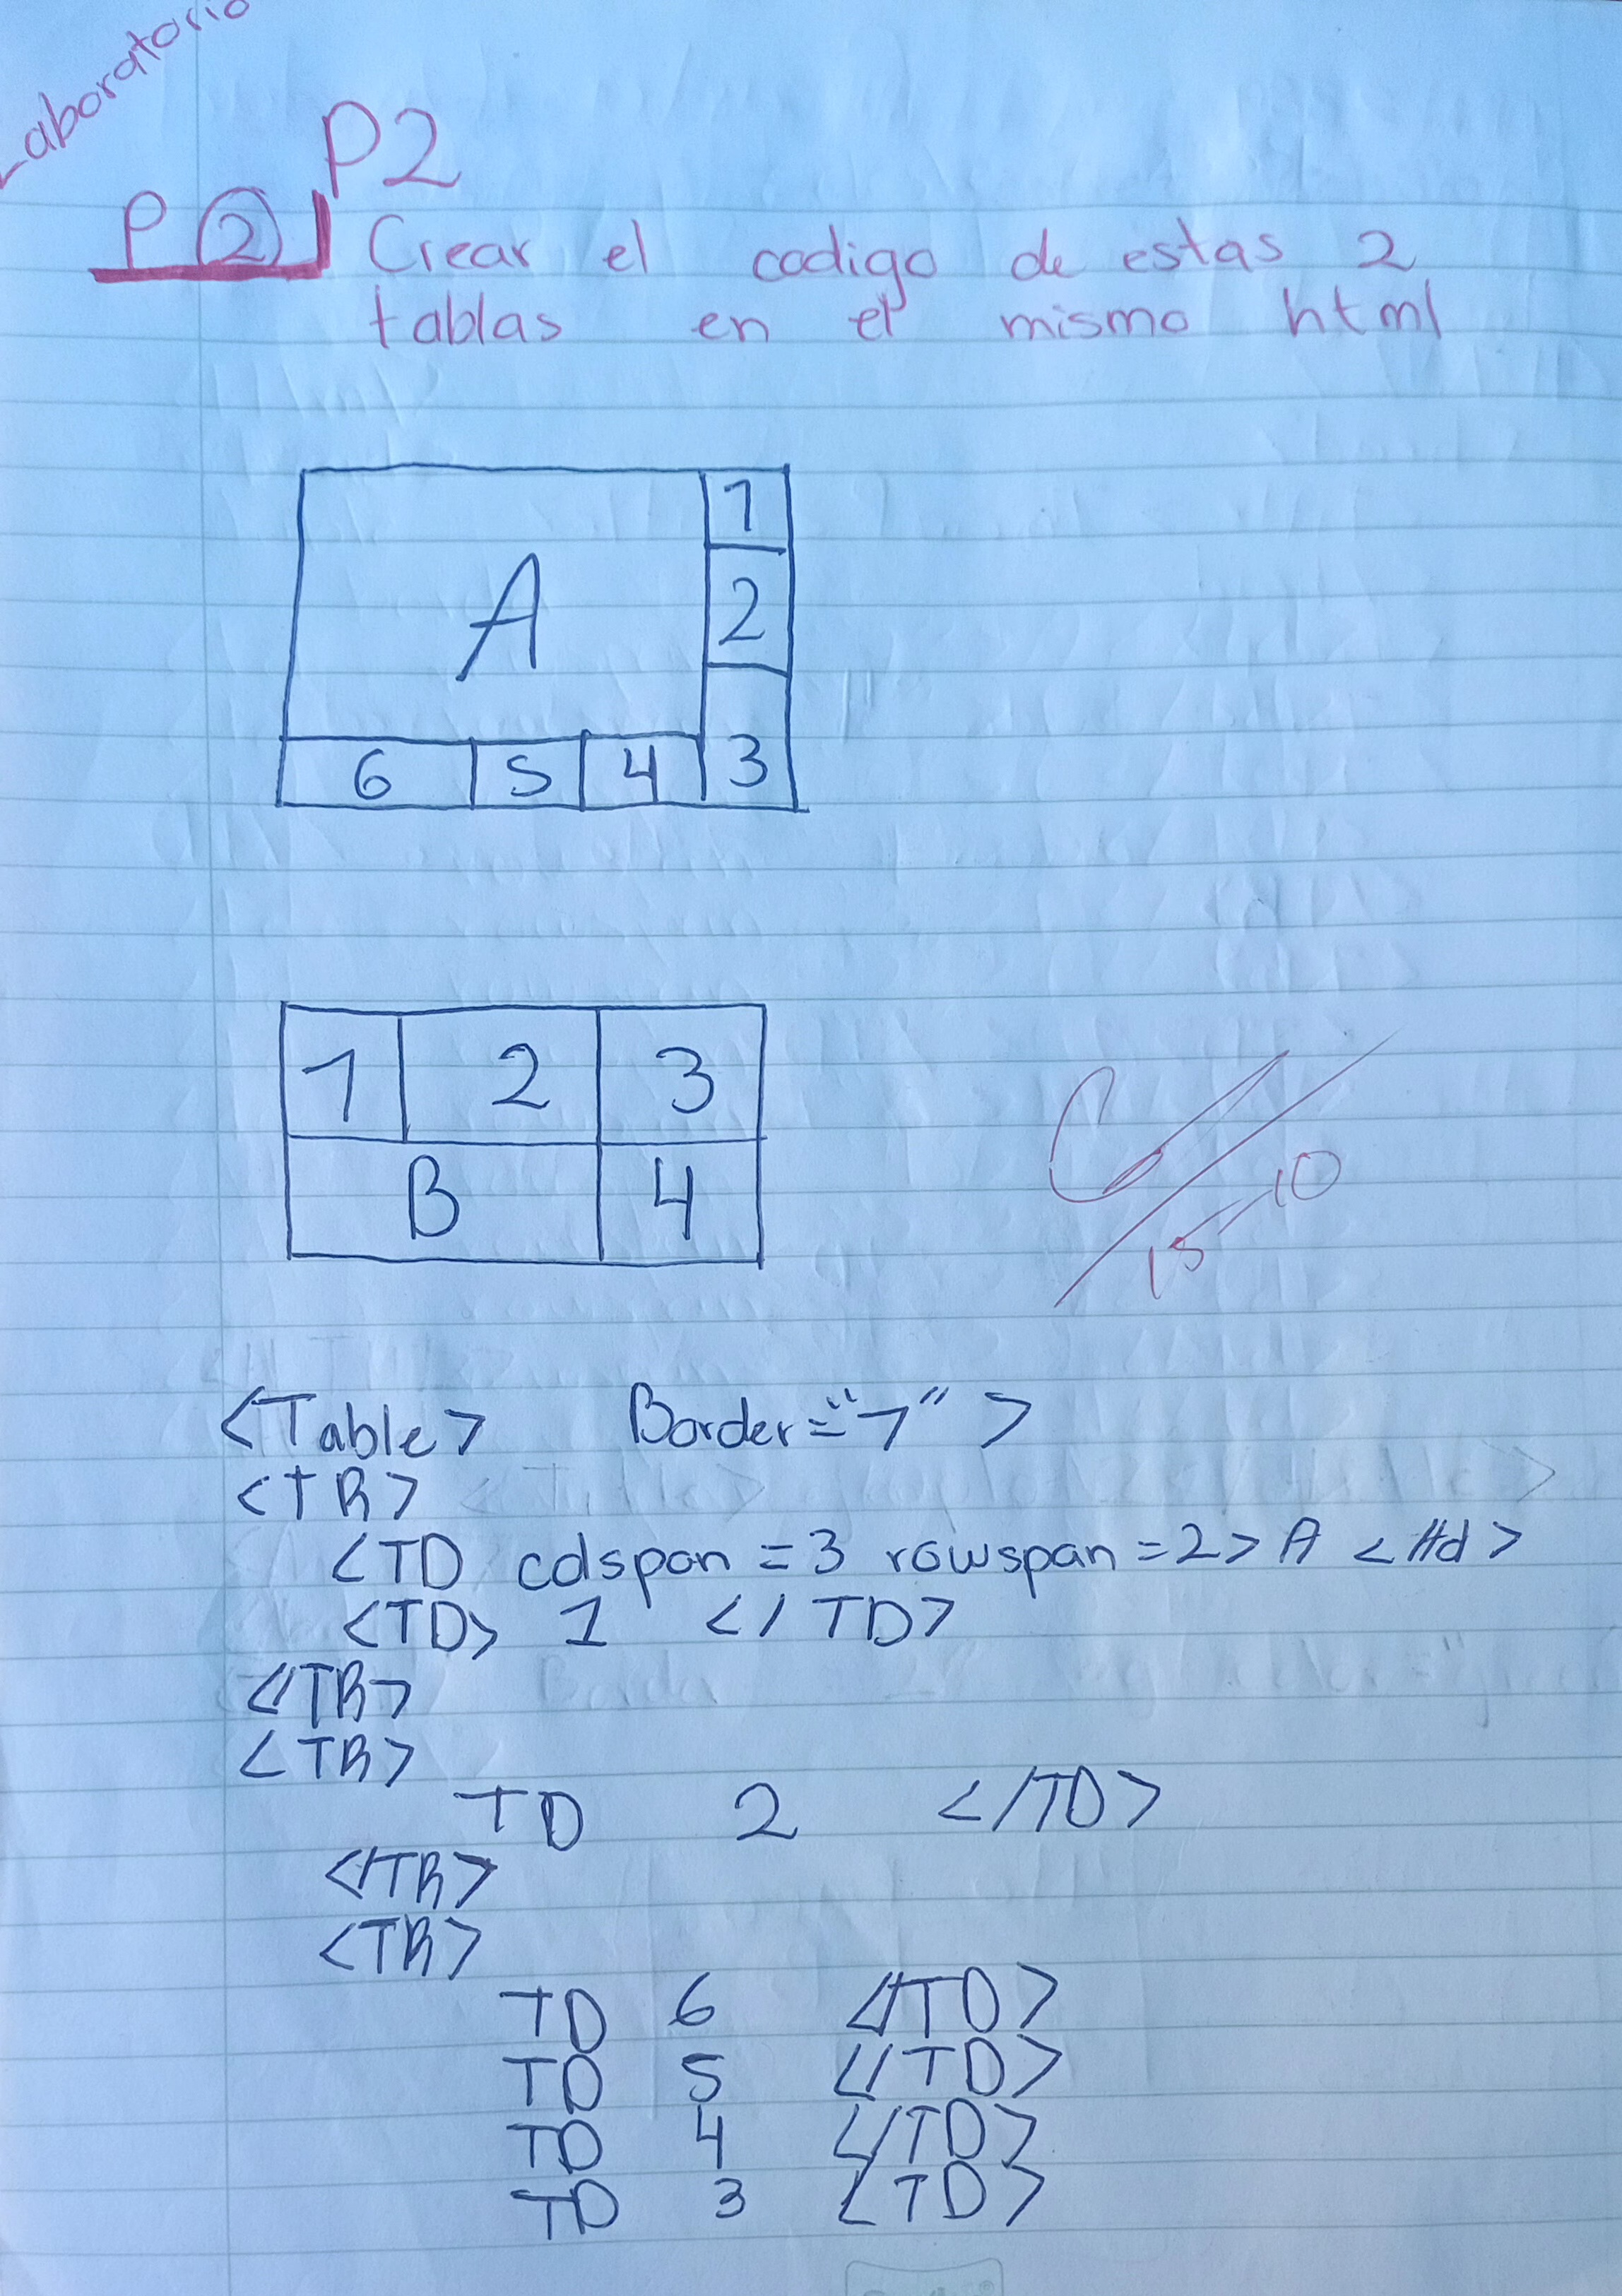 Laboratorio
P2
P 2 Crear el codigo de estas 2
tablas en el mismo html
A
1
2
6 5 4 3
1 2 3
B 4
10
15
<Table> Border="7" >
<TR>
<TD colspan =3 rowspan =2> A </td>
<TD> 1 </ TD>
</TR>
<TR>
TD 2 </TD>
</TR>
<TR>
TD 6 </TD>
TD 5 </TD>
TD 4 </TD>
TD 3 <TD>